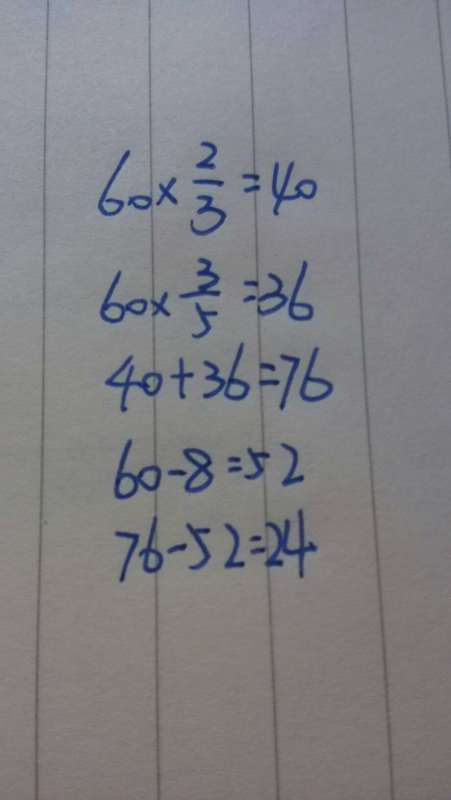 60×2/3=40
60×3/5=36
40+36=76
60-8=52
76-52=24